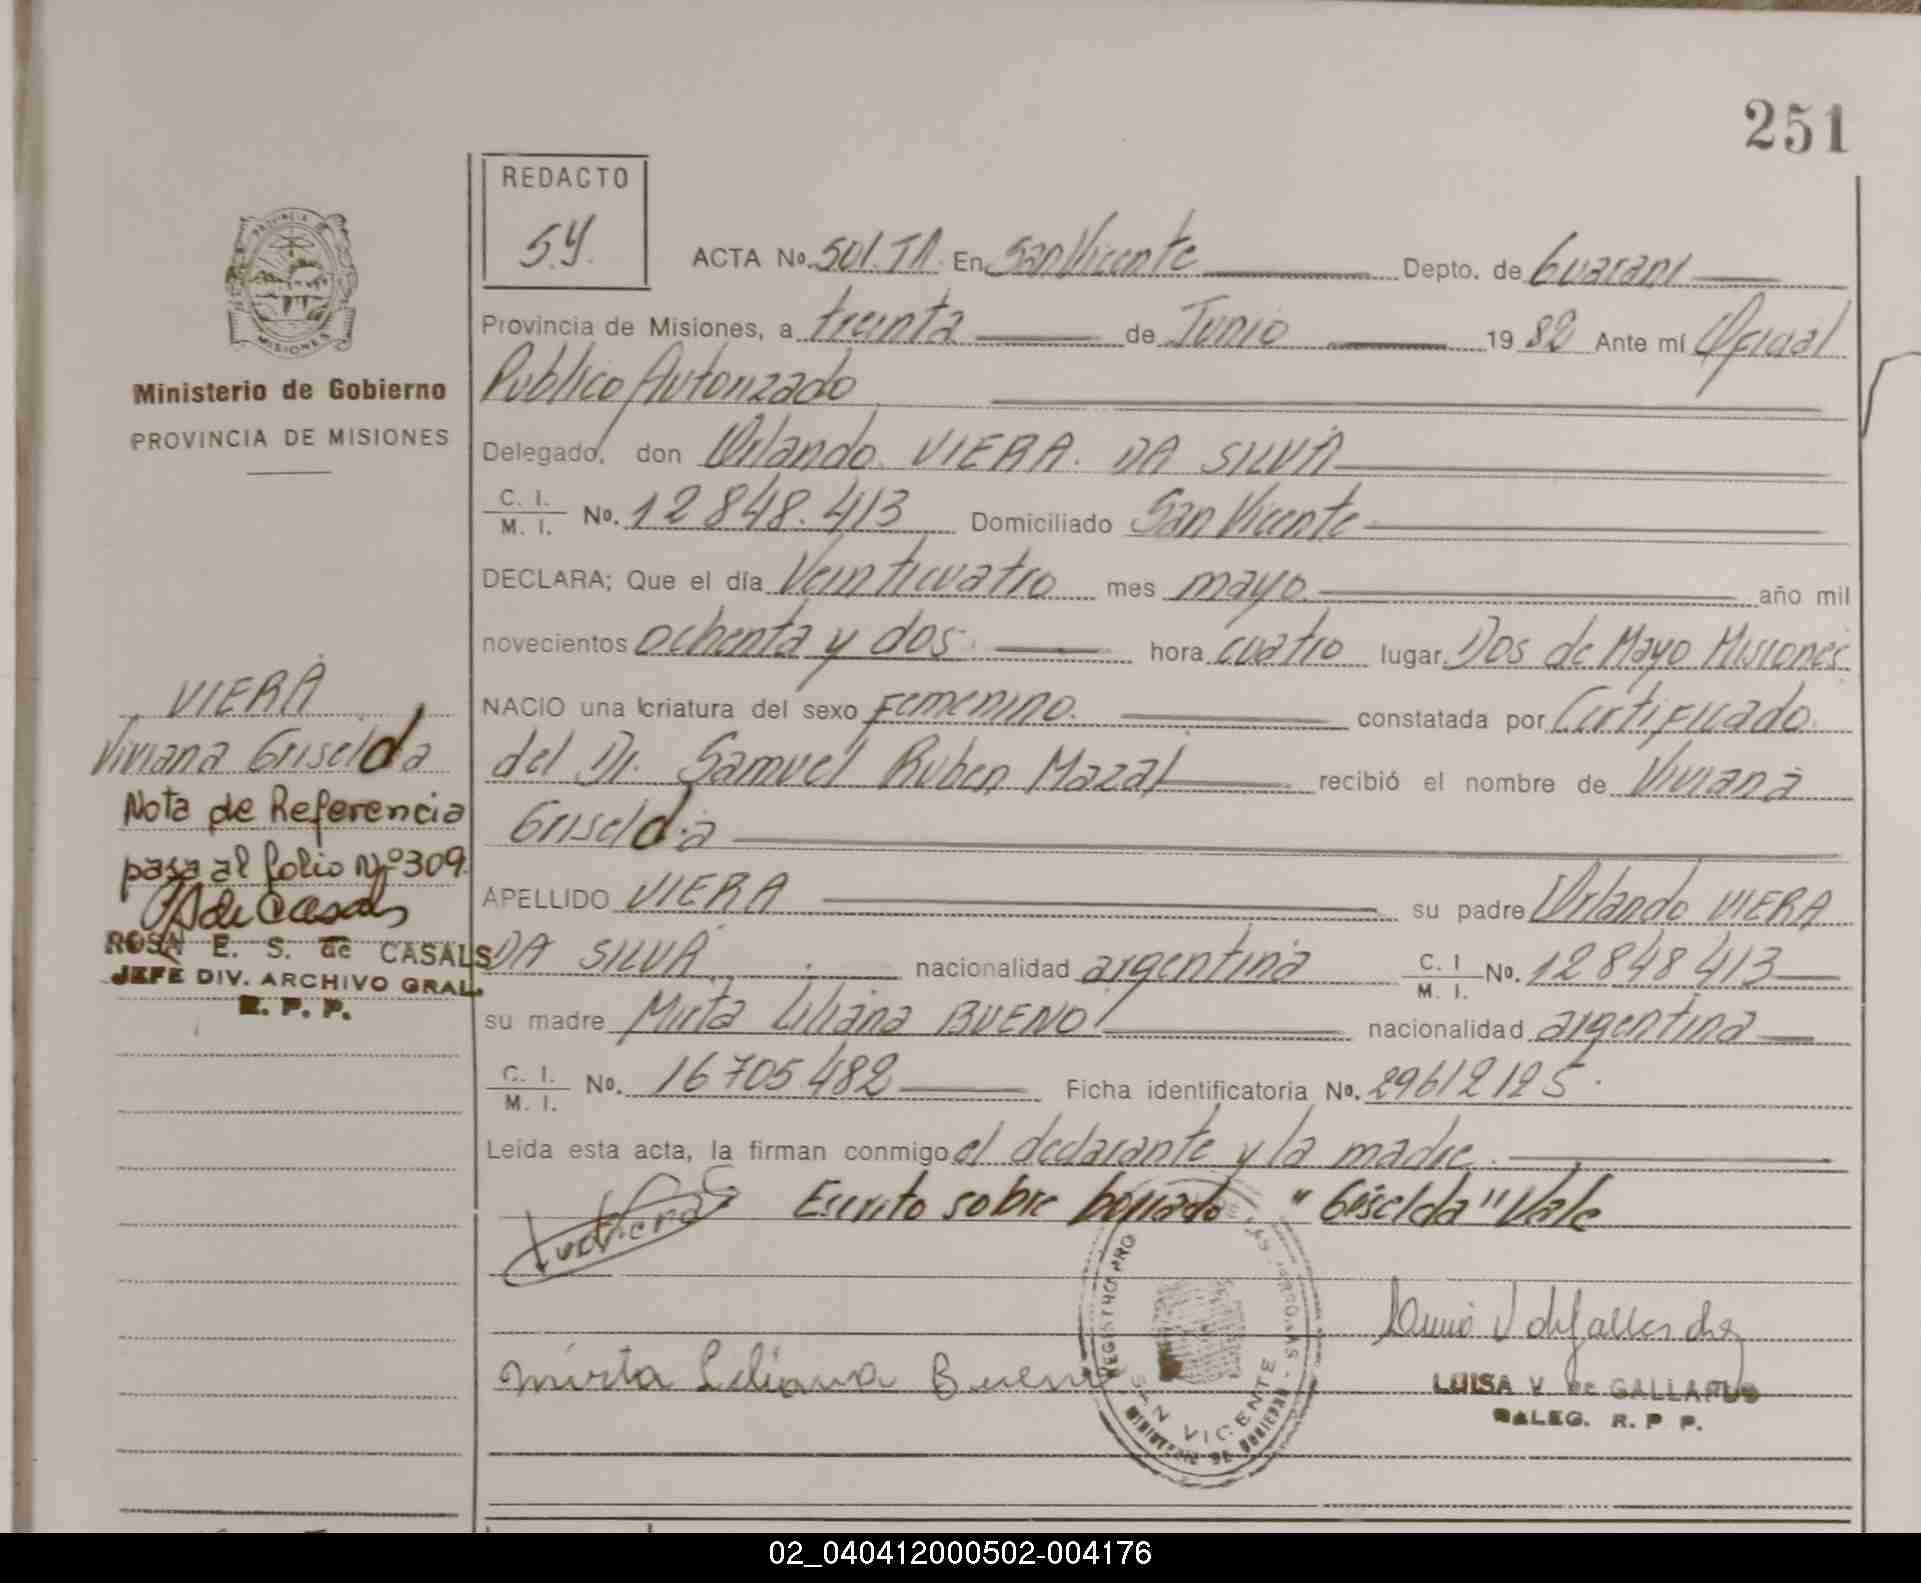 251
REDACTO
S.Y.
ACTA No. 501. TA. En San Vicente Depto. de Guarani
Provincia de Misiones, a treinta de Junio 19 82 Ante mí Oficial
Publico Autorizado
Delegado, don Orlando. VIERA. DA SILVA
C. I. M. I. No. 12 848. 413 Domiciliado San Vicente
DECLARA; Que el día Veinticuatro mes mayo. año mil
novecientos ochenta y dos. hora cuatro lugar Dos de Mayo Misiones.
NACIO una criatura del sexo Femenino. constatada por Certificado
del Dr. Samuel Ruben Mazal recibió el nombre de Viviana
Griselda
APELLIDO VIERA su padre Orlando VIERA
DA SILVA. nacionalidad argentina C. I M. I. No. 12 848 413
su madre Mirta Liliana BUENO nacionalidad argentina
C. I. M. I. No. 16 705 482 Ficha identificatoria No. 29612125.
Leída esta acta, la firman conmigo el declarante y la madre.
Escrito sobre borrado. "Griselda" Vale
mirta Liliana Bueno
LUISA V. de GALLARDO
DALEG. R. P P.
REGISTRO PRO DE LAS PERSONAS
SAN VICENTE
MINISTERIO DE GOBIERNO
PROVINCIA
MISIONES
Ministerio de Gobierno
PROVINCIA DE MISIONES
VIERA
Viviana Griselda
Nota de Referencia
pasa al folio Nº 309.
ROSA E. S. de CASALS
JEFE DIV. ARCHIVO GRAL.
R. P. P.
02_040412000502-004176